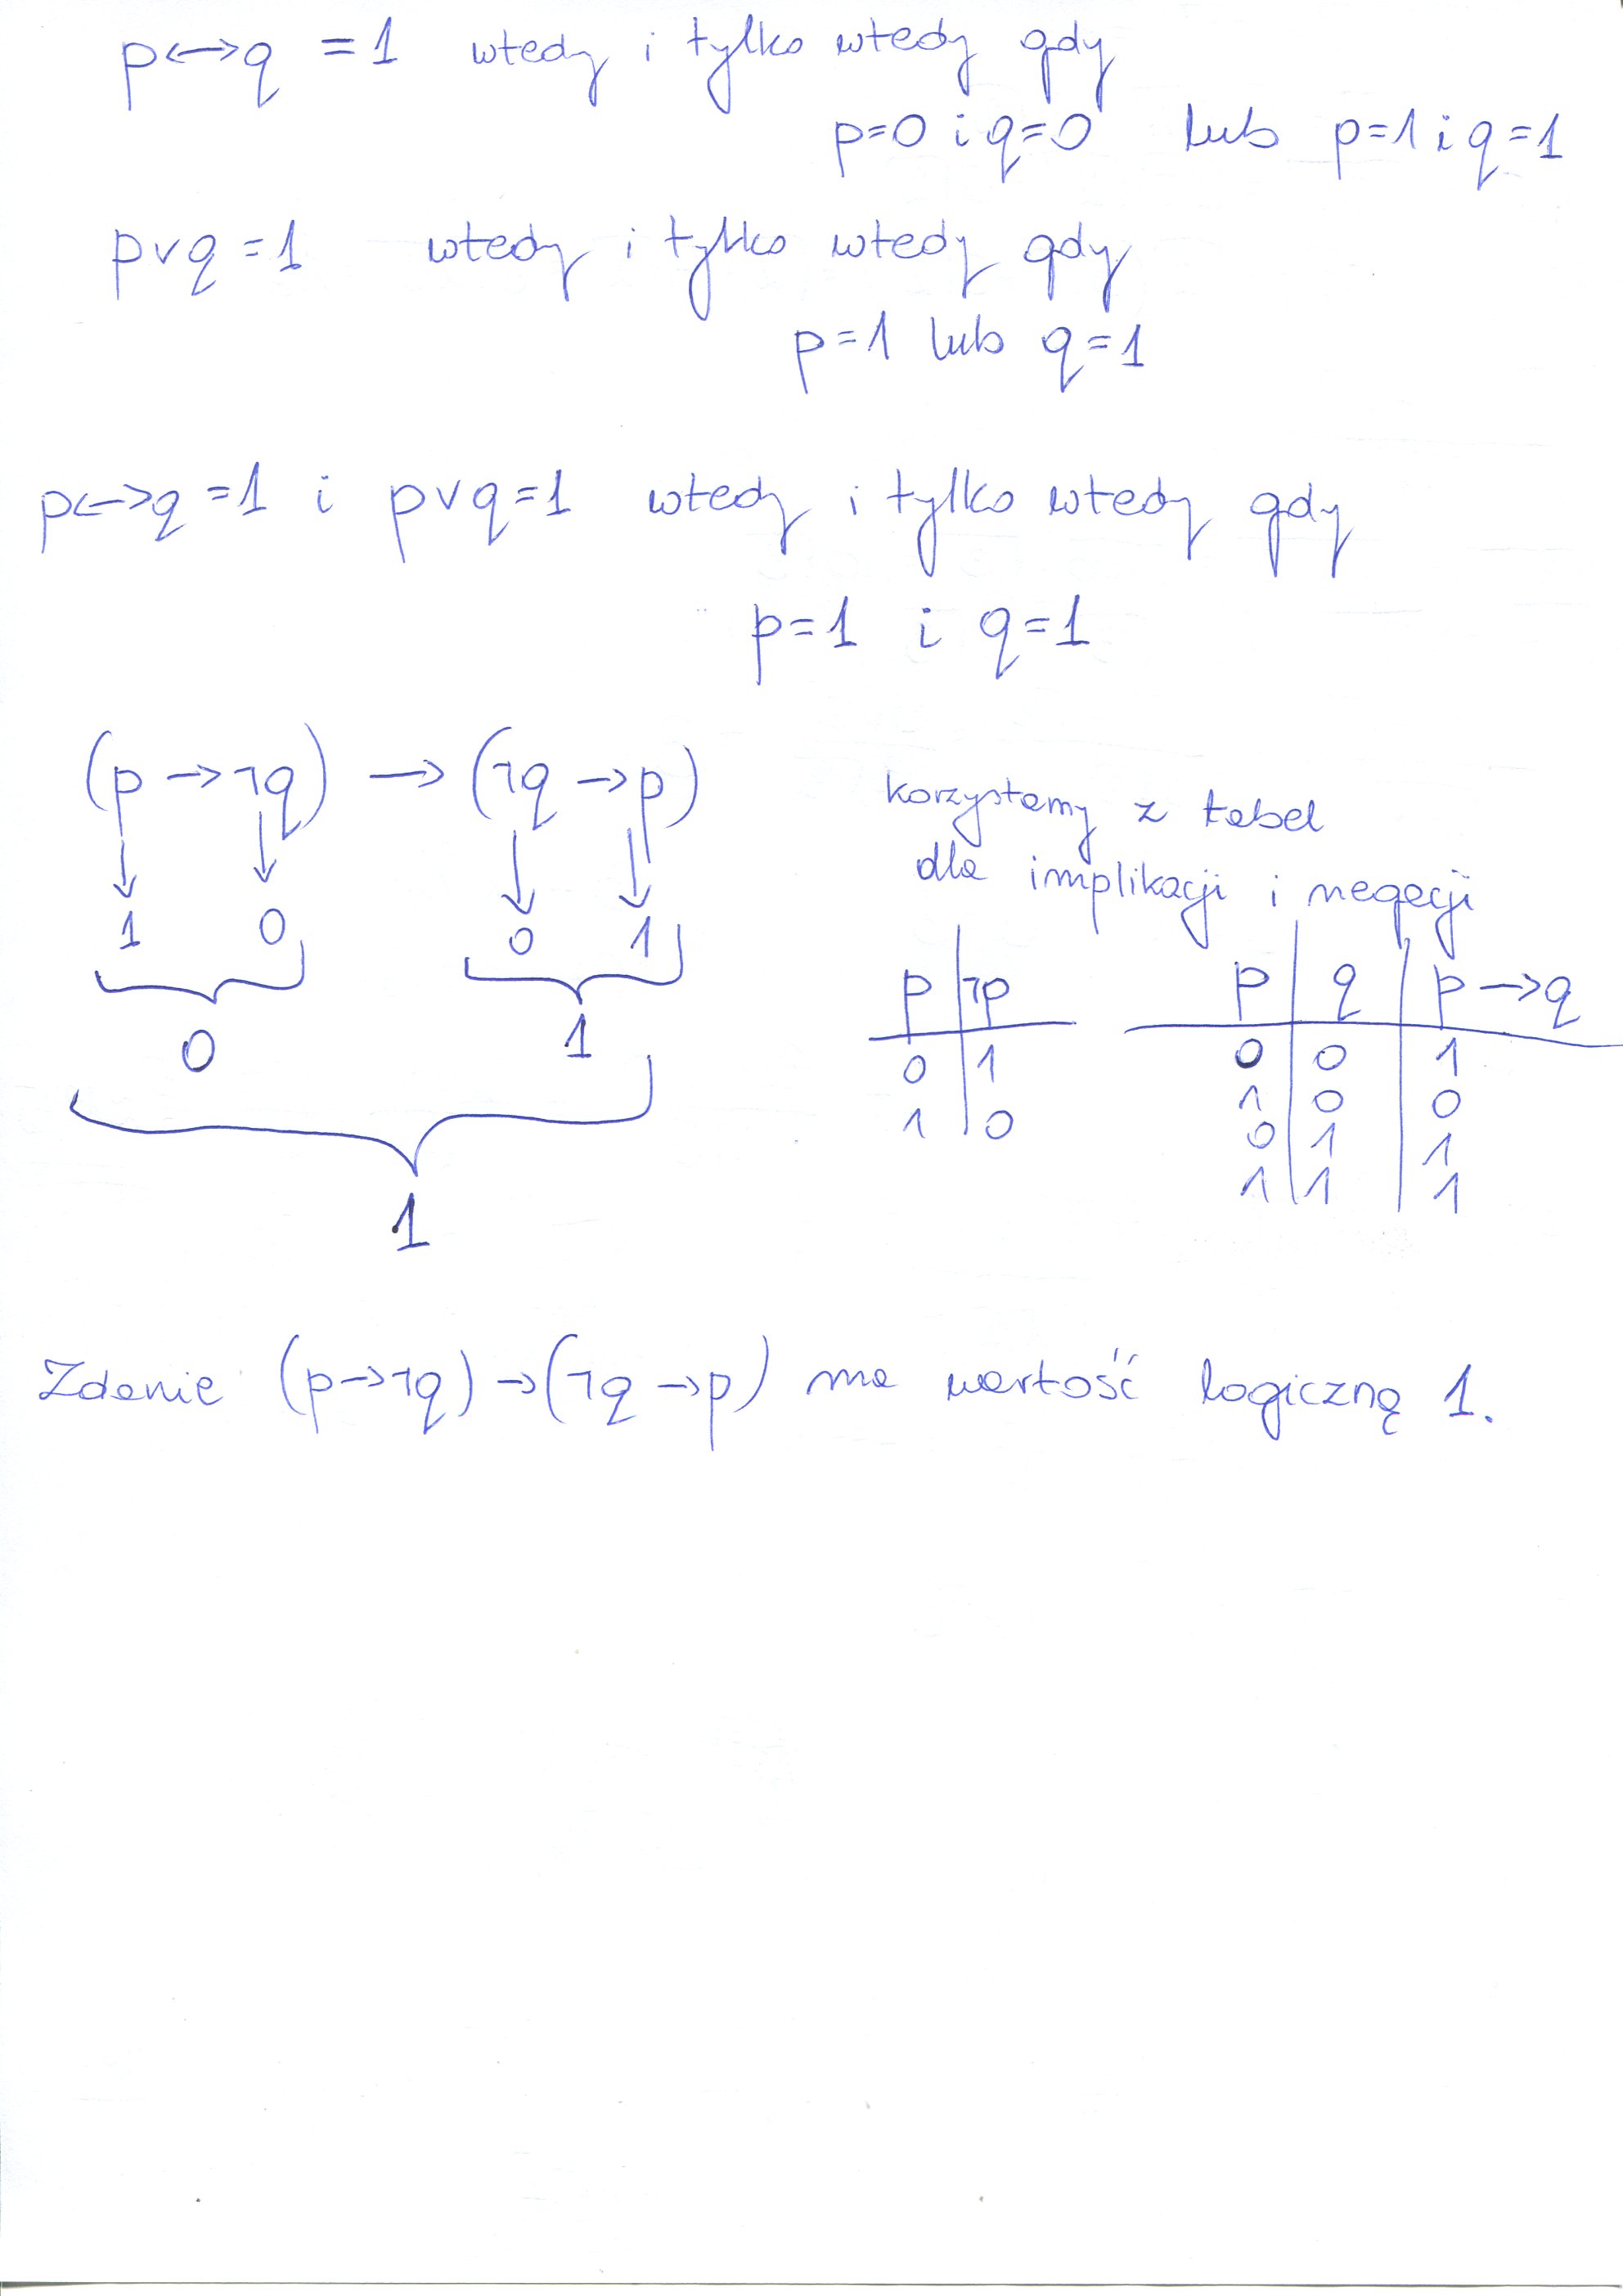 p↔q = 1 wtedy i tylko wtedy gdy
p=0 i q=0 lub p=1 i q=1
p∨q = 1 wtedy i tylko wtedy gdy
p=1 lub q=1
p↔q =1 i p∨q=1 wtedy i tylko wtedy gdy
p=1 i q=1
(p → ¬q) → (¬q → p)
1 0 0 1
0 1
1
korzystamy z tabel
dla implikacji i negacji
p ¬p
0 1
1 0
p q p → q
0 0 1
1 0 0
0 1 1
1 1 1
Zdanie (p→¬q)→(¬q→p) ma wartość logiczną 1.